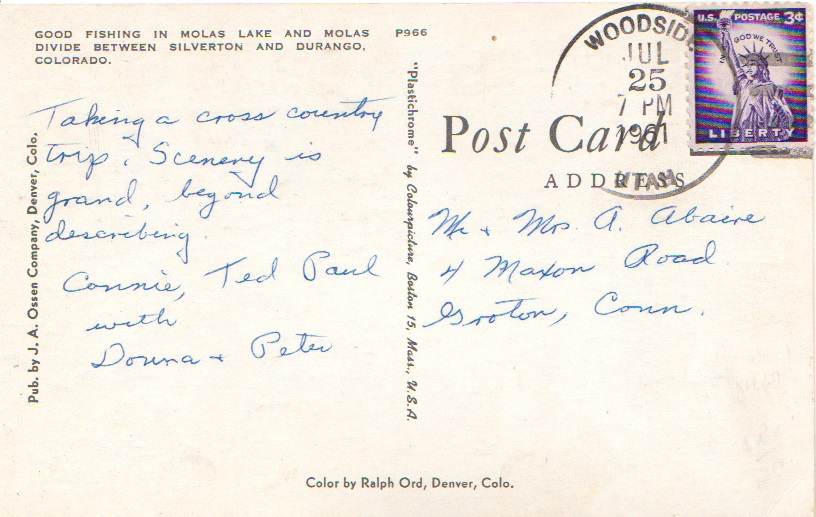 GOOD FISHING IN MOLAS LAKE AND MOLAS P966
DIVIDE BETWEEN SILVERTON AND DURANGO,
COLORADO.
Taking a cross country
trip. Scenery is
grand, beyond
describing.
Connie, Ted Paul
with
Donna + Peter
Pub. by J. A. Ossen Company, Denver, Colo.
"Plastichrome" by Colourpicture, Boston 15, Mass., U.S.A.
WOODSIDE
JUL
25
7 PM
1961
UTAH
U.S. POSTAGE 3¢
IN GOD WE TRUST
LIBERTY
Post Card
ADDRESS
Mr + Mrs. A. Abaire
4 Maxon Road
Groton, Conn.
Color by Ralph Ord, Denver, Colo.